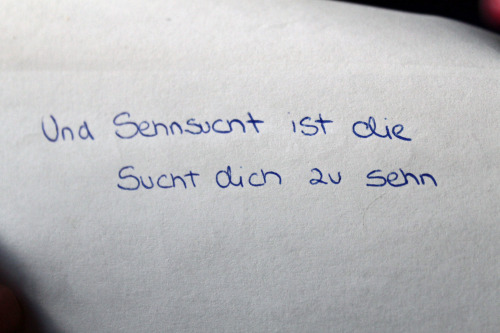 Und Sehnsucht ist die
Sucht dich zu sehn